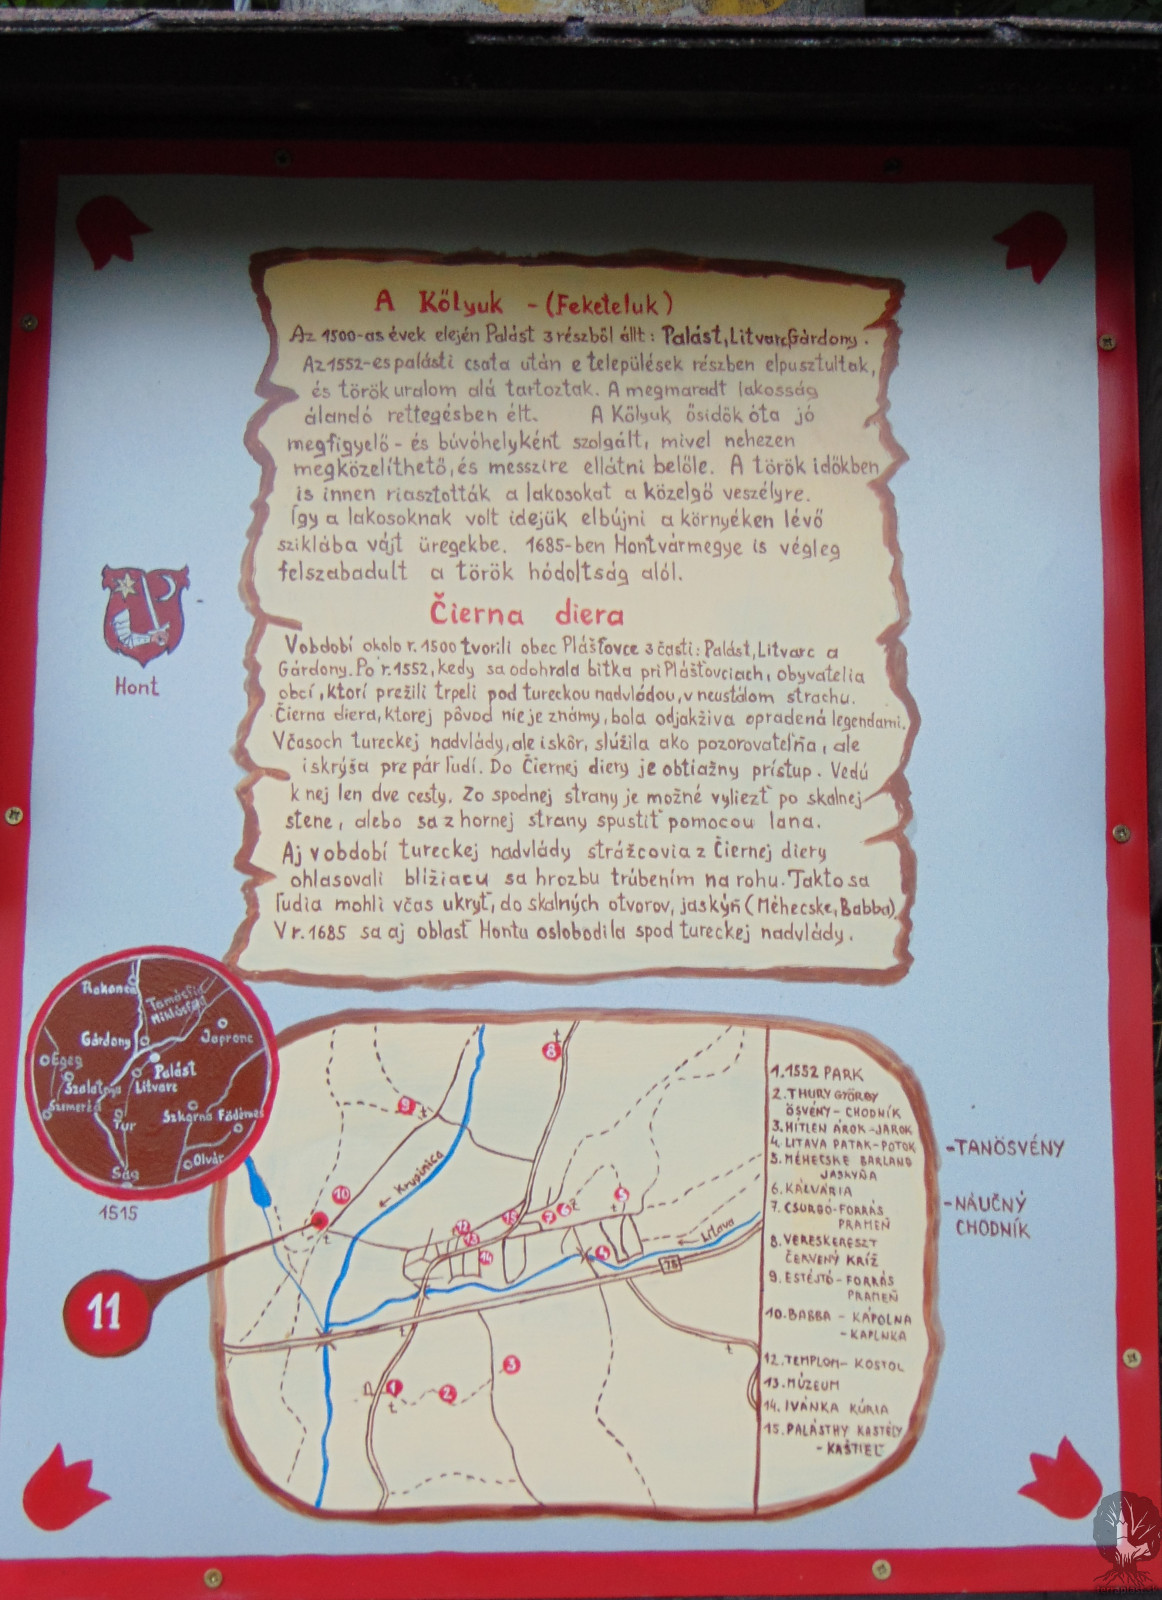 A Kőlyuk - (Feketeluk)
Az 1500-as évek elején Palást 3 részből állt: Palást, Litvarc, Gárdony.
Az 1552-es palásti csata után e települések részben elpusztultak,
és török uralom alá tartoztak. A megmaradt lakosság
álandó rettegésben élt. A Kőlyuk ősidők óta jó
megfigyelő- és búvóhelyként szolgált, mivel nehezen
megközelíthető, és messzire ellátni belőle. A török időkben
is innen riasztották a lakosokat a közelgő veszélyre.
Így a lakosoknak volt idejük elbújni a környéken lévő
sziklába vájt üregekbe. 1685-ben Hontvármegye is végleg
felszabadult a török hódoltság alól.
Čierna diera
V období okolo r. 1500 tvorili obec Plášťovce 3 časti: Palást, Litvarc a
Gárdony. Po r. 1552, kedy sa odohrala bitka pri Plášťovciach, obyvatelia
obcí, ktorí prežili trpeli pod tureckou nadvládou, v neustálom strachu.
Čierna diera, ktorej pôvod nie je známy, bola odjakživa opradená legendami.
V časoch tureckej nadvlády, ale i skôr, slúžila ako pozorovateľňa, ale
i skrýša pre pár ľudí. Do Čiernej diery je obtiažny prístup. Vedú
k nej len dve cesty. Zo spodnej strany je možné vyliezť po skalnej
stene, alebo sa z hornej strany spustiť pomocou lana.
Aj v období tureckej nadvlády strážcovia z Čiernej diery
ohlasovali blížiacu sa hrozbu trúbením na rohu. Takto sa
ľudia mohli včas ukryť, do skalných otvorov, jaskýň (Méhecske, Babba).
V r. 1685 sa aj oblasť Hontu oslobodila spod tureckej nadvlády.
Hont
Rakonca
Tamásfia
Miklósfia
Gárdony
Japronc
Egeg
Palást
Szalatnya
Litvarc
Szemeréd
Szkarna
Födémes
Tur
Olvár
Ság
1515
11
8
9
Krupinica
10
12
13
14
15
7
6
5
4
Litava
75
1
2
3
1. 1552 PARK
2. THURY GYÖRGY
ÖSVÉNY - CHODNÍK
3. HITLEN ÁROK - JAROK
4. LITAVA PATAK - POTOK
5. MÉHECSKE BARLANG
JASKYŇA
6. KÁLVÁRIA
7. CSURGÓ - FORRÁS
PRAMEŇ
8. VERESKERESZT
ČERVENÝ KRÍŽ
9. ESTÉJTÓ - FORRÁS
PRAMEŇ
10. BABBA - KÁPOLNA
- KAPLNKA
12. TEMPLOM - KOSTOL
13. MÚZEUM
14. IVÁNKA KÚRIA
15. PALÁSTHY KASTÉLY
- KAŠTIEĽ
- TANÖSVÉNY
- NÁUČNÝ
CHODNÍK